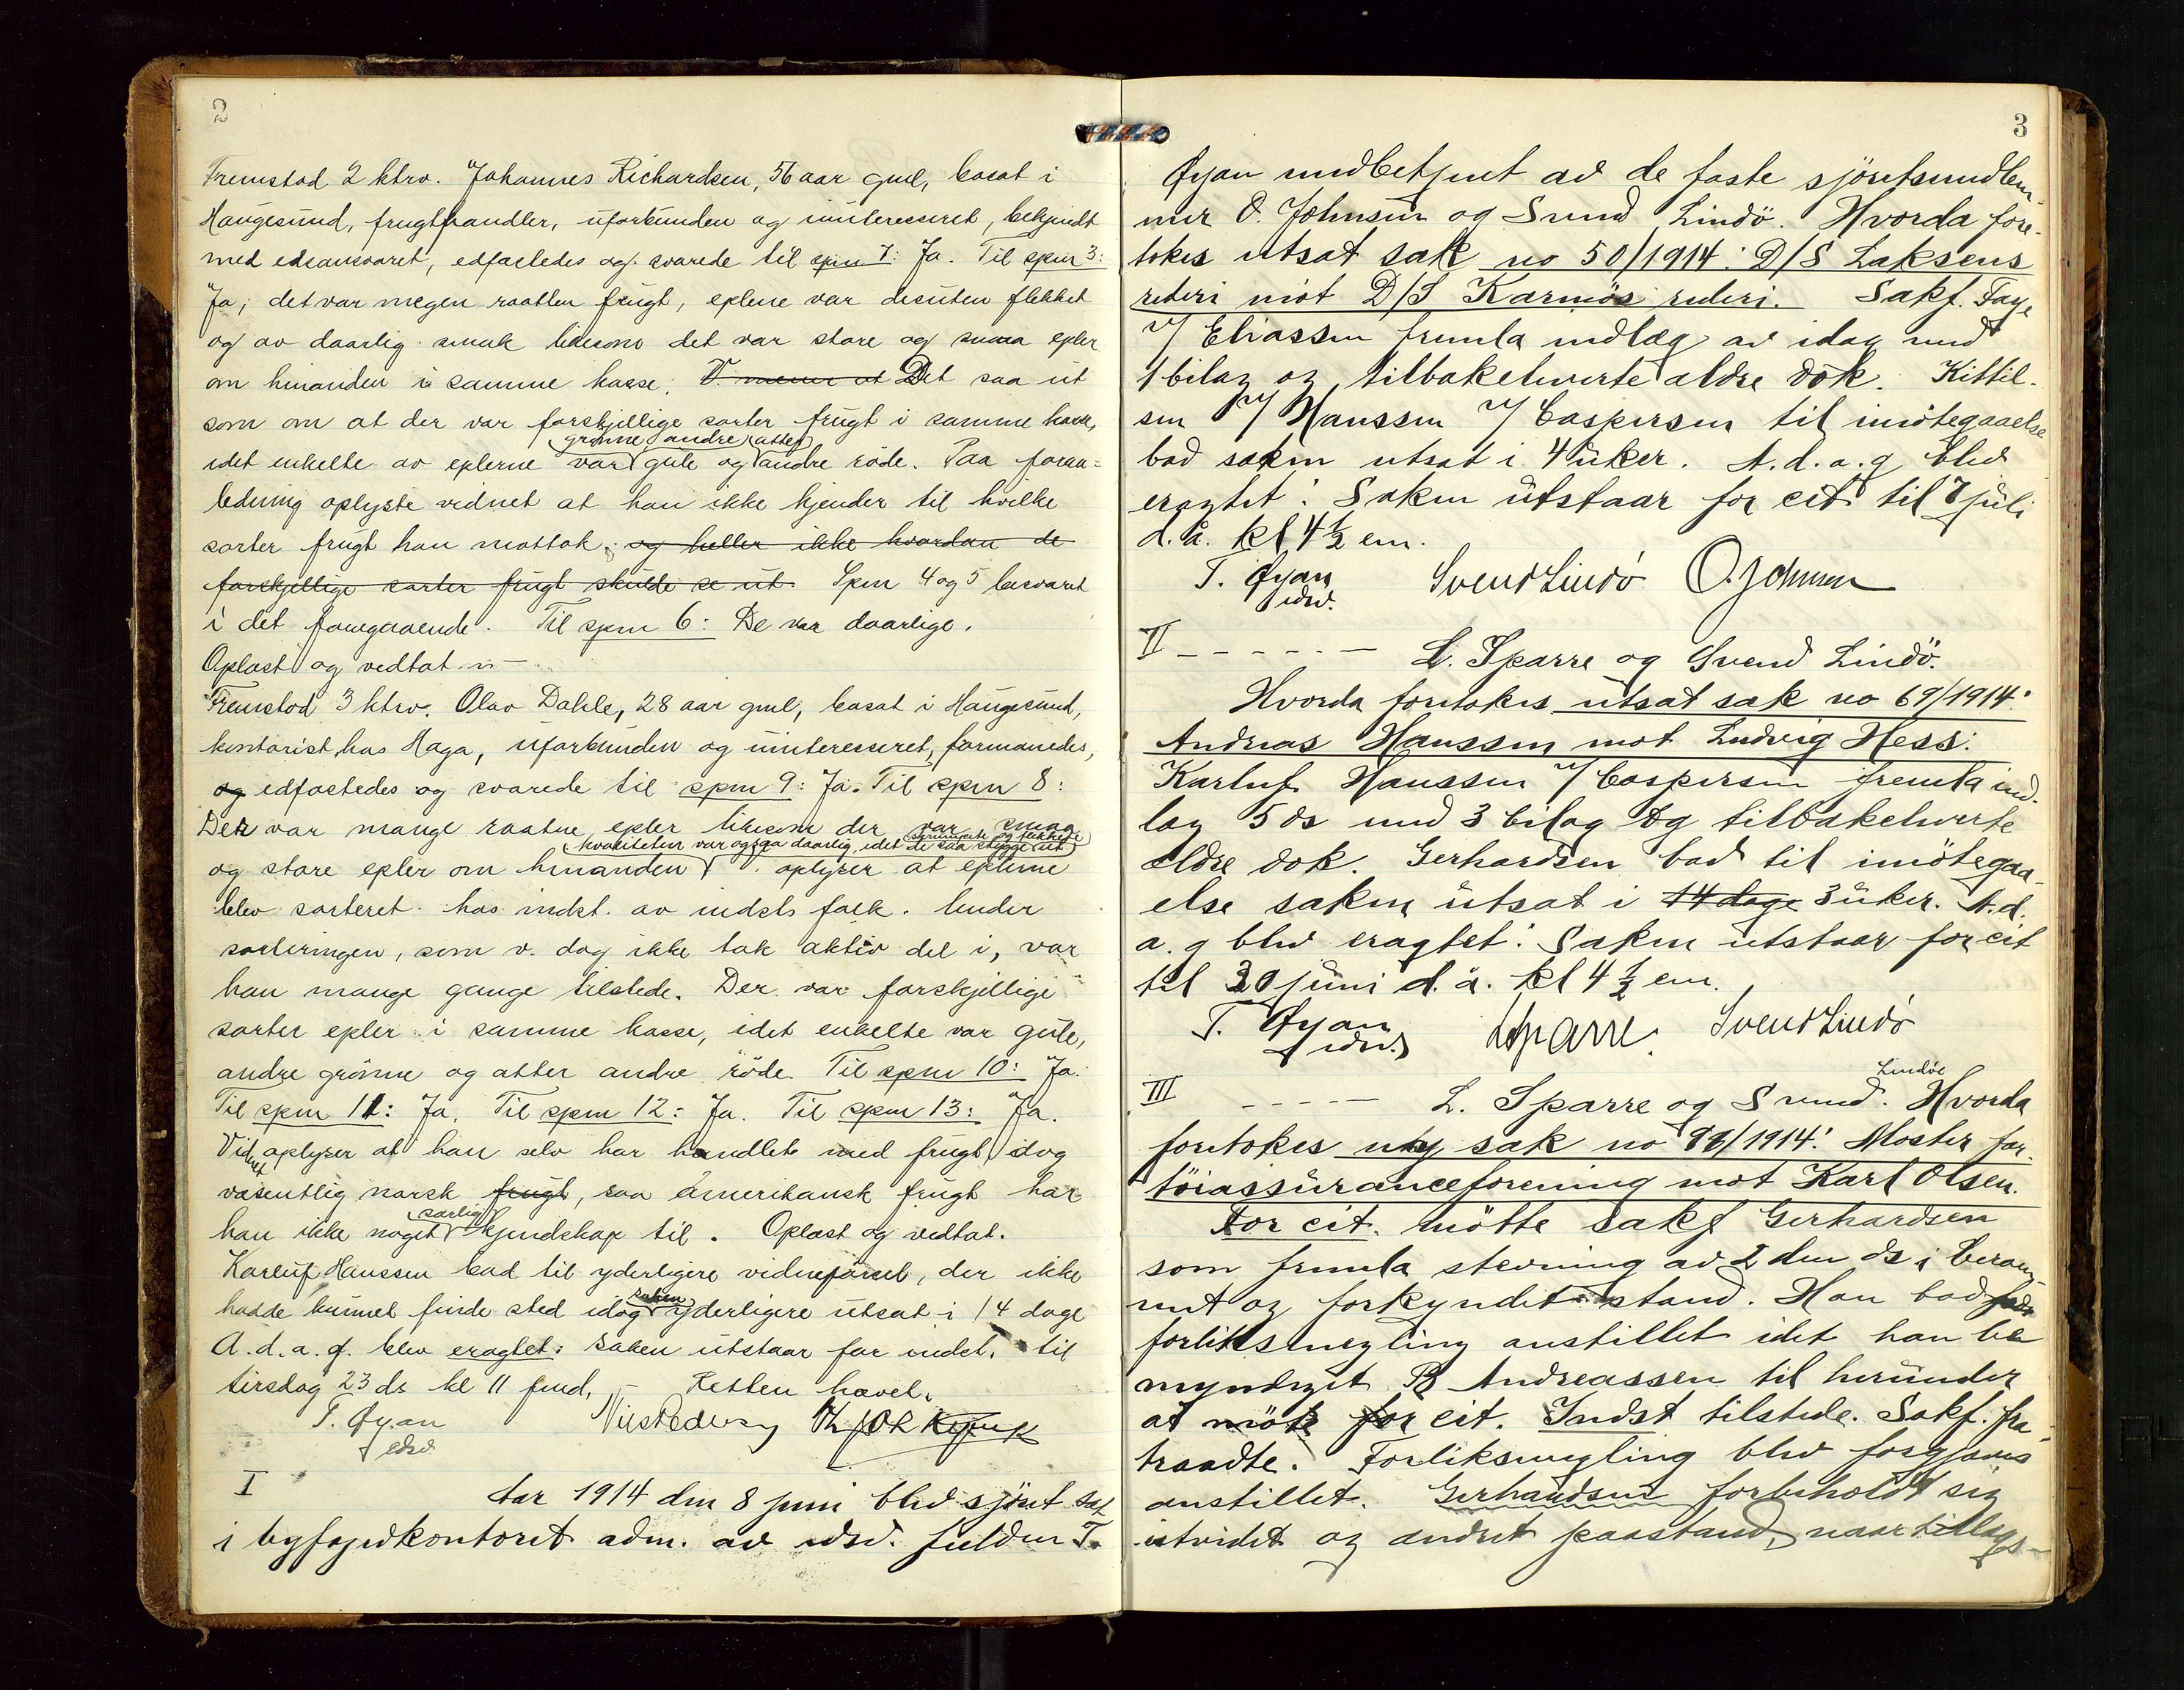 2
Fremstod 2 ktrv. Johannes Richardsen, 56 aar gml, bosat i
Haugesund, frugthandler, uforbunden og uinteresseret, bekjendt
med edsansvaret, edfæstedes og svarede til spm 7: Ja. Til spm 3:
Ja; det var megen raatten frugt, eplene var desuten flekket
og av daarlig smak likesom det var store og smaa epler
om hinanden i samme kasse. V. mener at Det saa ut
som om at der var forskjellige sorter frugt i samme kasse,
grønne andre atter
idet enkelte av eplerne var gule og andre røde. Paa foran=
ledning oplyste vidnet at han ikke kjender til hvilke
sorter frugt han mottok, og heller ikke hvordan de
forskjellige sorter frugt skulde se ut. Spm 4 og 5 besvaret
i det foregaaende. Til spm 6: De var daarlige.
Oplæst og vedtat
Fremstod 3 ktrv. Olav Dahle, 28 aar gml, bosat i Haugesund,
kontorist hos Haga, uforbunden og uinteresseret, formanedes,
og edfæstedes og svarede til spm 9: Ja. Til spm 8:
Der var mange raatne epler likesom der var smaa
skrumpete og flekkede
kvaliteten var ogsaa daarlig, idet de saa stygge ut
og store epler om hinanden . oplyser at eplerne
blev sorteret hos indst. av indsts folk. Under
sorteringen, som v. dog ikke tok aktiv del i, var
han mange gange tilstede. Der var forskjellige
sorter epler i samme kasse, idet enkelte var gule,
andre grønne og atter andre röde. Til spm 10: Ja.
Til spm 11: Ja. Til spm 12: Ja. Til spm 13: Ja.
Vidnet oplyser at han selv har handlet med frugt, dog
væsentlig norsk frugt, saa amerikansk frugt har
særlig
han ikke noget kjendskap til. Oplæst og vedtat.
Karluf Hanssen bad til yderligere vidneførsel, der ikke
saken
hadde kunnet finde sted idag yderligere utsat i 14 dage
A. d. a. g. blev eragtet: Saken utstaar for indst. til
tirsdag 23 ds kl 11 fmd, – Retten hævet.
T. Øyan
edsv.
I
Aar 1914 den 8 juni blev sjöret sat
i byfogedkontoret adm. av edsv. fuldm T.
3
Øyan medbetjent av de faste sjöretsmedlem-
mer O. Johnsen og Svend Lindö. Hvorda fore-
tokes utsat sak no 50/1914: D/S Laksens
rederi mot D/S Karmøs rederi. Sakf. Faye
v/ Eliassen fremla indlæg av idag med
1 bilag og tilbakeleverte ældre dok. Kittil-
sen v/ Hanssen v/ Caspersen til imötegaaelse
bad saken utsat i 4 uker. A. d. a. g blev
eragtet: Saken utstaar for cit til 7 juli
d. å. kl 4 ½ em.
T. Øyan
edsv.
Svend Lindö O. Johnsen
II - - - - - - L. Sparre og Svend Lindö.
Hvorda foretokes utsat sak no 69/1914:
Andreas Hanssen mot Ludvig Hess:
Karluf Hanssen v/ Caspersen fremla ind-
læg 5 ds med 3 bilag og tilbakeleverte
ældre dok. Gerhardsen bad til imötegaa-
else saken utsat i 14 dage 3 uker. A. d.
a. g blev eragtet: Saken utstaar for cit
til 30 juni d. å. kl 4 ½ em.
T. Øyan
edsv.
LSparre. Svend Lindö
Lindöe
III - - - - - L. Sparre og Svend. Hvorda
foretokes ny sak no 98/1914: Moster far-
töiassuranceforening mot Karl Olsen.
For cit. mötte sakf Gerhardsen
som fremla stevning av 2 den ds i beram-
met og forkyndet stand. Han bad
forliksmegling anstillet idet han be
myndiget B Andreassen til herunder
at möte for cit. Indst tilstede. Sakf. fra-
traadte. Forliksmegling blev forgjæves
anstillet. Gerhardsen forbeholdt sig
utvidet og ændret paastand, naar tillægs-